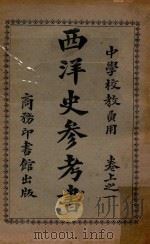 中學校教員用
卷上之
西洋史參考書
商務印書館出版